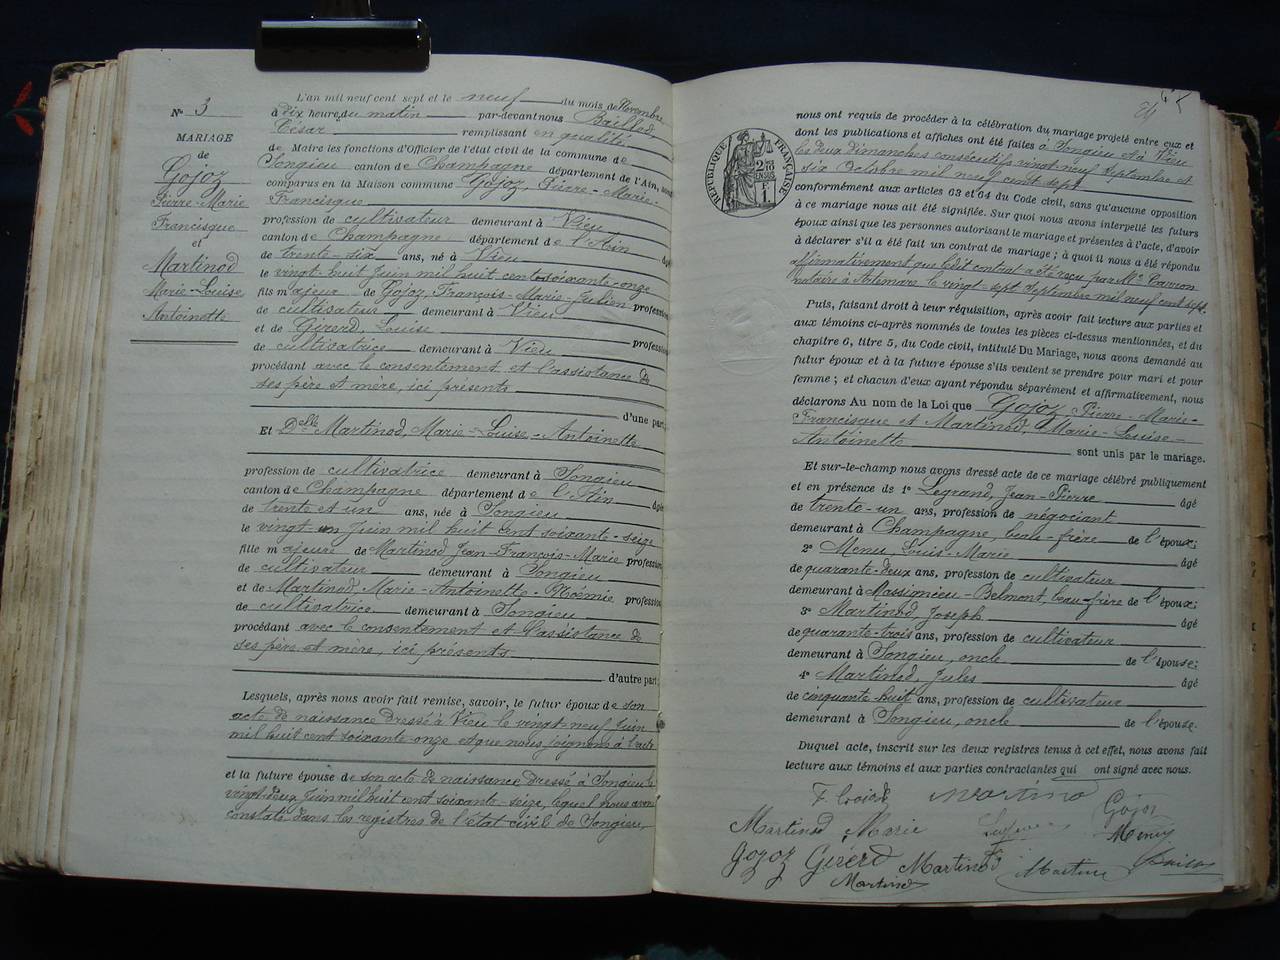 Nº 3
MARIAGE
de
Gojoz
Pierre-Marie
Francisque
et
Martinod
Marie-Louise
Antoinette
L'an mil neuf cent sept et le neuf du mois de Novembre
à dix heures du matin par-devant nous Baillod
César remplissant en qualité
de Maire les fonctions d'Officier de l'état civil de la commune de
Songieu canton de Champagne département de l'Ain, sont
comparus en la Maison commune Gojoz, Pierre-Marie-
Francisque
profession de cultivateur demeurant à Vieu
canton de Champagne département de l'Ain âgé
de trente-six ans, né à Vieu
le vingt huit Juin mil huit cent soixante-onze
fils majeur de Gojoz, François-Marie-Julien profession
de cultivateur demeurant à Vieu
et de Girerd, Louise profession
de cultivatrice demeurant à Vieu
procédant avec le consentement et l'assistance de
ses père et mère, ici présents
d'une part,
Et Delle Martinod, Marie-Louise-Antoinette
profession de cultivatrice demeurant à Songieu
canton de Champagne département de l'Ain âgée
de trente et un ans, née à Songieu
le vingt-un Juin mil huit cent soixante-seize
fille majeure de Martinod Jean-François-Marie profession
de cultivateur demeurant à Songieu
et de Martinod, Marie-Antoinette-Noémie profession
de cultivatrice demeurant à Songieu
procédant avec le consentement et l'assistance de
ses père et mère, ici présents
d'autre part;
Lesquels, après nous avoir fait remise, savoir, le futur époux de son
acte de naissance dressé à Vieu le vingt-neuf Juin
mil huit cent soixante-onze et que nous joignons à l'acte
et la future épouse de son acte de naissance dressé à Songieu le
vingt-deux Juin mil huit cent soixante-seize, lequel nous avons
constaté dans les registres de l'état civil de Songieu,
RÉPUBLIQUE FRANÇAISE
nous ont requis de procéder à la célébration du mariage projeté entre eux et
dont les publications et affiches ont été faites à Songieu et à Vieu
les deux dimanches consécutifs vingt-neuf Septembre et
six Octobre mil neuf cent sept
conformément aux articles 63 et 64 du Code civil, sans qu'aucune opposition
à ce mariage nous ait été signifiée. Sur quoi nous avons interpellé les futurs
époux ainsi que les personnes autorisant le mariage et présentes à l'acte, d'avoir
à déclarer s'il a été fait un contrat de mariage; à quoi il nous a été répondu
affirmativement que ledit contrat a été reçu par Me Carron
notaire à Artemare le vingt-sept Septembre mil neuf cent sept.
Puis, faisant droit à leur réquisition, après avoir fait lecture aux parties et
aux témoins ci-après nommés de toutes les pièces ci-dessus mentionnées, et du
chapitre 6, titre 5, du Code civil, intitulé Du Mariage, nous avons demandé au
futur époux et à la future épouse s'ils veulent se prendre pour mari et pour
femme; et chacun d'eux ayant répondu séparément et affirmativement, nous
déclarons Au nom de la Loi que Gojoz Pierre-Marie-
Francisque et Martinod, Marie-Louise-
Antoinette sont unis par le mariage.
Et sur-le-champ nous avons dressé acte de ce mariage célébré publiquement
et en présence de 1º Legrand, Jean-Pierre âgé
de trente-un ans, profession de négociant
demeurant à Champagne, beau-frère de l'époux;
2º Menu, Louis-Marie âgé
de quarante-deux ans, profession de cultivateur
demeurant à Massignieu-Belmont, beau-frère de l'époux;
3º Martinod, Joseph âgé
de quarante-trois ans, profession de cultivateur
demeurant à Songieu, oncle de l'épouse;
4º Martinod, Jules âgé
de cinquante-huit ans, profession de cultivateur
demeurant à Songieu, oncle de l'épouse.
Duquel acte, inscrit sur les deux registres tenus à cet effet, nous avons fait
lecture aux témoins et aux parties contractantes qui ont signé avec nous.
Martinod Gojoz
Martinod Marie Menu
Gojoz Girerd Martinod
Martinod